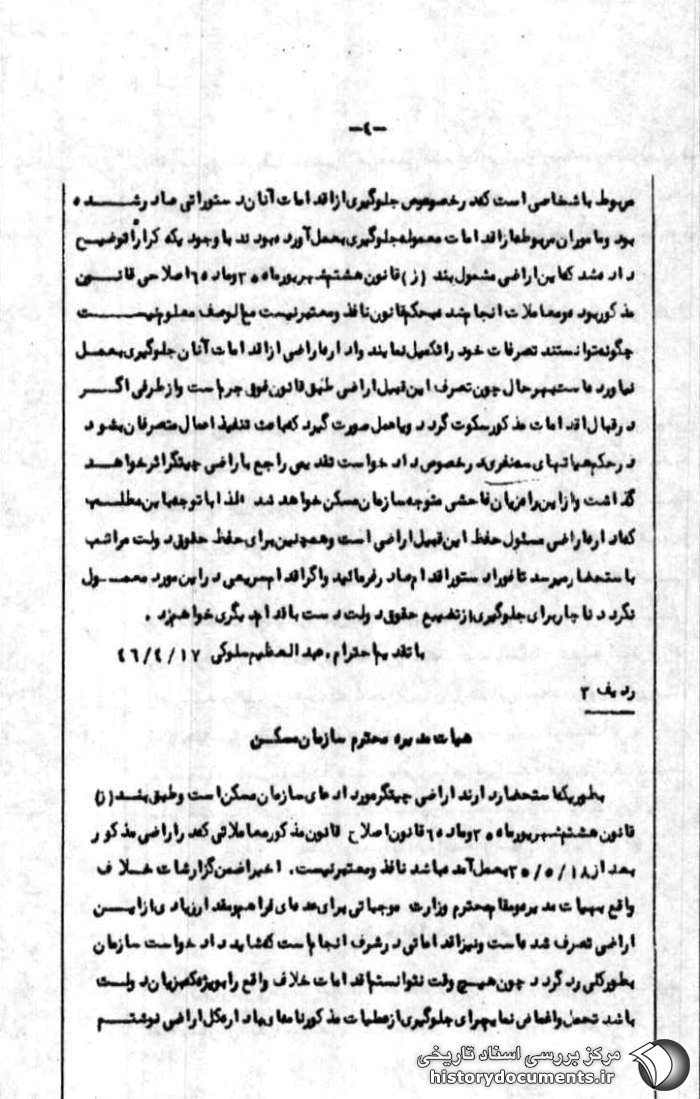 -٤-
مربوط باشخاصی است که در خصوص جلوگیری از اقدامات آنان دستوراتی صادر شده
بود و ماموران مربوطه از اقدامات معموله جلوگیری بعمل آورده بودند با وجودیکه کراراً توضیح
داده شد که این اراضی مشمول بند (ز) قانون هشتم شهریور ماه ۳۵ و ماده ٦ اصلاحی قانون
مذکور بوده و معاملات انجام شده بحکم قانون نافذ و معتبر نیست مع الوصف معلوم نیست
چگونه توانستند تصرفات خود را تکمیل نمایند و اداره اراضی از اقدامات آنان جلوگیری بعمل
نیاورده است بهر حال چون تصرف این قبیل اراضی طبق قانون فوق جرم است و از طرفی اگر
در قبال اقدامات مذکور سکوت گردد و یا عمل صورت گیرد که باعث تنفیذ اعمال متصرفان بشود
در حکم هیاتهای سه نفری در خصوص داد خواست تقدیمی راجع باراضی چیتگر اثر خواهد
گذاشت و از این راه زیان فاحشی متوجه سازمان مسکن خواهد شد لذا با توجه باین مطلب
که اداره اراضی مسئول حفظ این قبیل اراضی است و همچنین برای حفظ حقوق دولت مراتب
باستحضار میرسد تا فورا دستور اقدام صادر فرمائید و اگر اقدام سریعی در این مورد معمول
نگردد ناچار برای جلوگیری از تضییع حقوق دولت دست باقدام دیگری خواهم زد .
با تقدیم احترام . عبدالعظیم سلوکی ٤٦/٤/۱۷
ردیف ۳
هیات مدیره محترم سازمان مسکن
بطوریکه استحضار دارند اراضی چیتگر مورد ادعای سازمان مسکن است و طبق بند (ز)
قانون هشتم شهریور ماه ۳۵ و ماده ٦ قانون اصلاح قانون مذکور معاملاتی که در اراضی مذکور
بعد از ۳۵/۵/۱۸ بعمل آمده باشد نافذ و معتبر نیست . اخیرا ضمن گزارشات خلاف
واقع بهیات مدیره و مقام محترم وزارت موجباتی برای عده ای فراهم و مقدار زیادی از این
اراضی تصرف شده است و نیز اقداماتی در شرف انجام است که شاید داد خواست سازمان
بطور کلی رد گردد چون هیچ وقت نتوانستم اقدامات خلاف واقع را بویژه که بزیان دولت
باشد تحمل و اغماض نمایم برای جلوگیری از عملیات مذکور نامه ای باداره کل اراضی نوشتم
مرکز بررسی اسناد تاریخی
historydocuments.ir